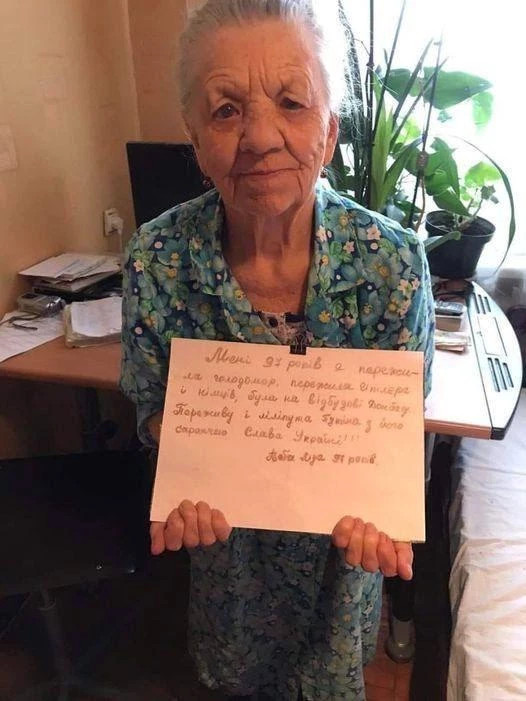 Мені 97 років я пережи-
ла голодомор, пережила Гітлера
і німців, була на відбудові Донбасу
Переживу і ліліпута Путіна з його
саранчою Слава Україні!!!
Баба Ліза 97 років.